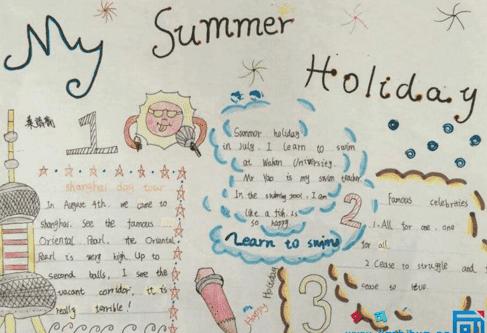 My Summer Holiday
1
shanghai day tour
In August 4th, we come to
shanghai. See the famous
Oriental Pearl. the Oriental
Pearl is very high. Up to
second balls, I see the
vacant corridor, it is
really terrible!
Summer holiday
in July. I learn to swim
at Wuhan University.
Mr Yao is my swim teacher.
In the swimming pool, I am
like a fish.
so happy
Learn to swim
2
Happy Holiday
3
Famous celebrities
1.All for one, one
for all.
2.Cease to struggle and
cease to live.